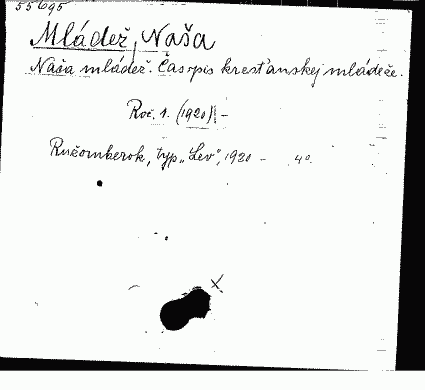 55695
Mládež, Naša
Naša mládež. Časopis kresťanskej mládeže.
Roč. 1. (1920) -
Ružomberok, typ. „Lev", 1920 - 4°.